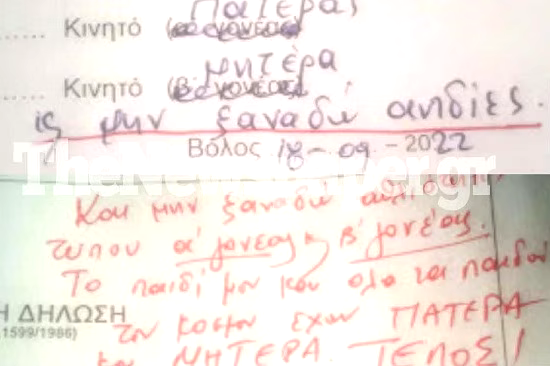 πατέρας
...... Κινητό (α' γονέας)
μητέρα
...... Κινητό (β' γονέας)
ις μην ξαναδώ αηδίες.
Βόλος 18-09-2022
TheNewspaper.gr
Και μην ξαναδώ
τύπου α' γονέας ή β' γονέας.
Το παιδί μου και όλα τα παιδιά
Η ΔΗΛΩΣΗ του κόσμου έχουν ΠΑΤΕΡΑ
1599/1986)
και ΜΗΤΕΡΑ. ΤΕΛΟΣ!